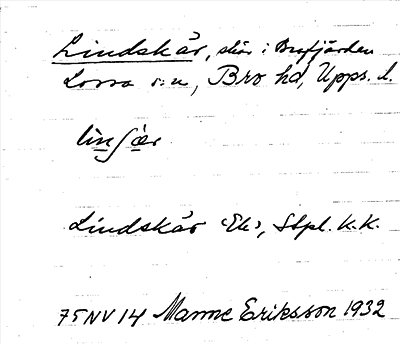 Lindskär, skär i Brofjärden
Lossa s:n, Bro hd, Upps. l.
linʃær
Lindskär Ek, Stpl. K.K.
75NV14 Manne Eriksson 1932